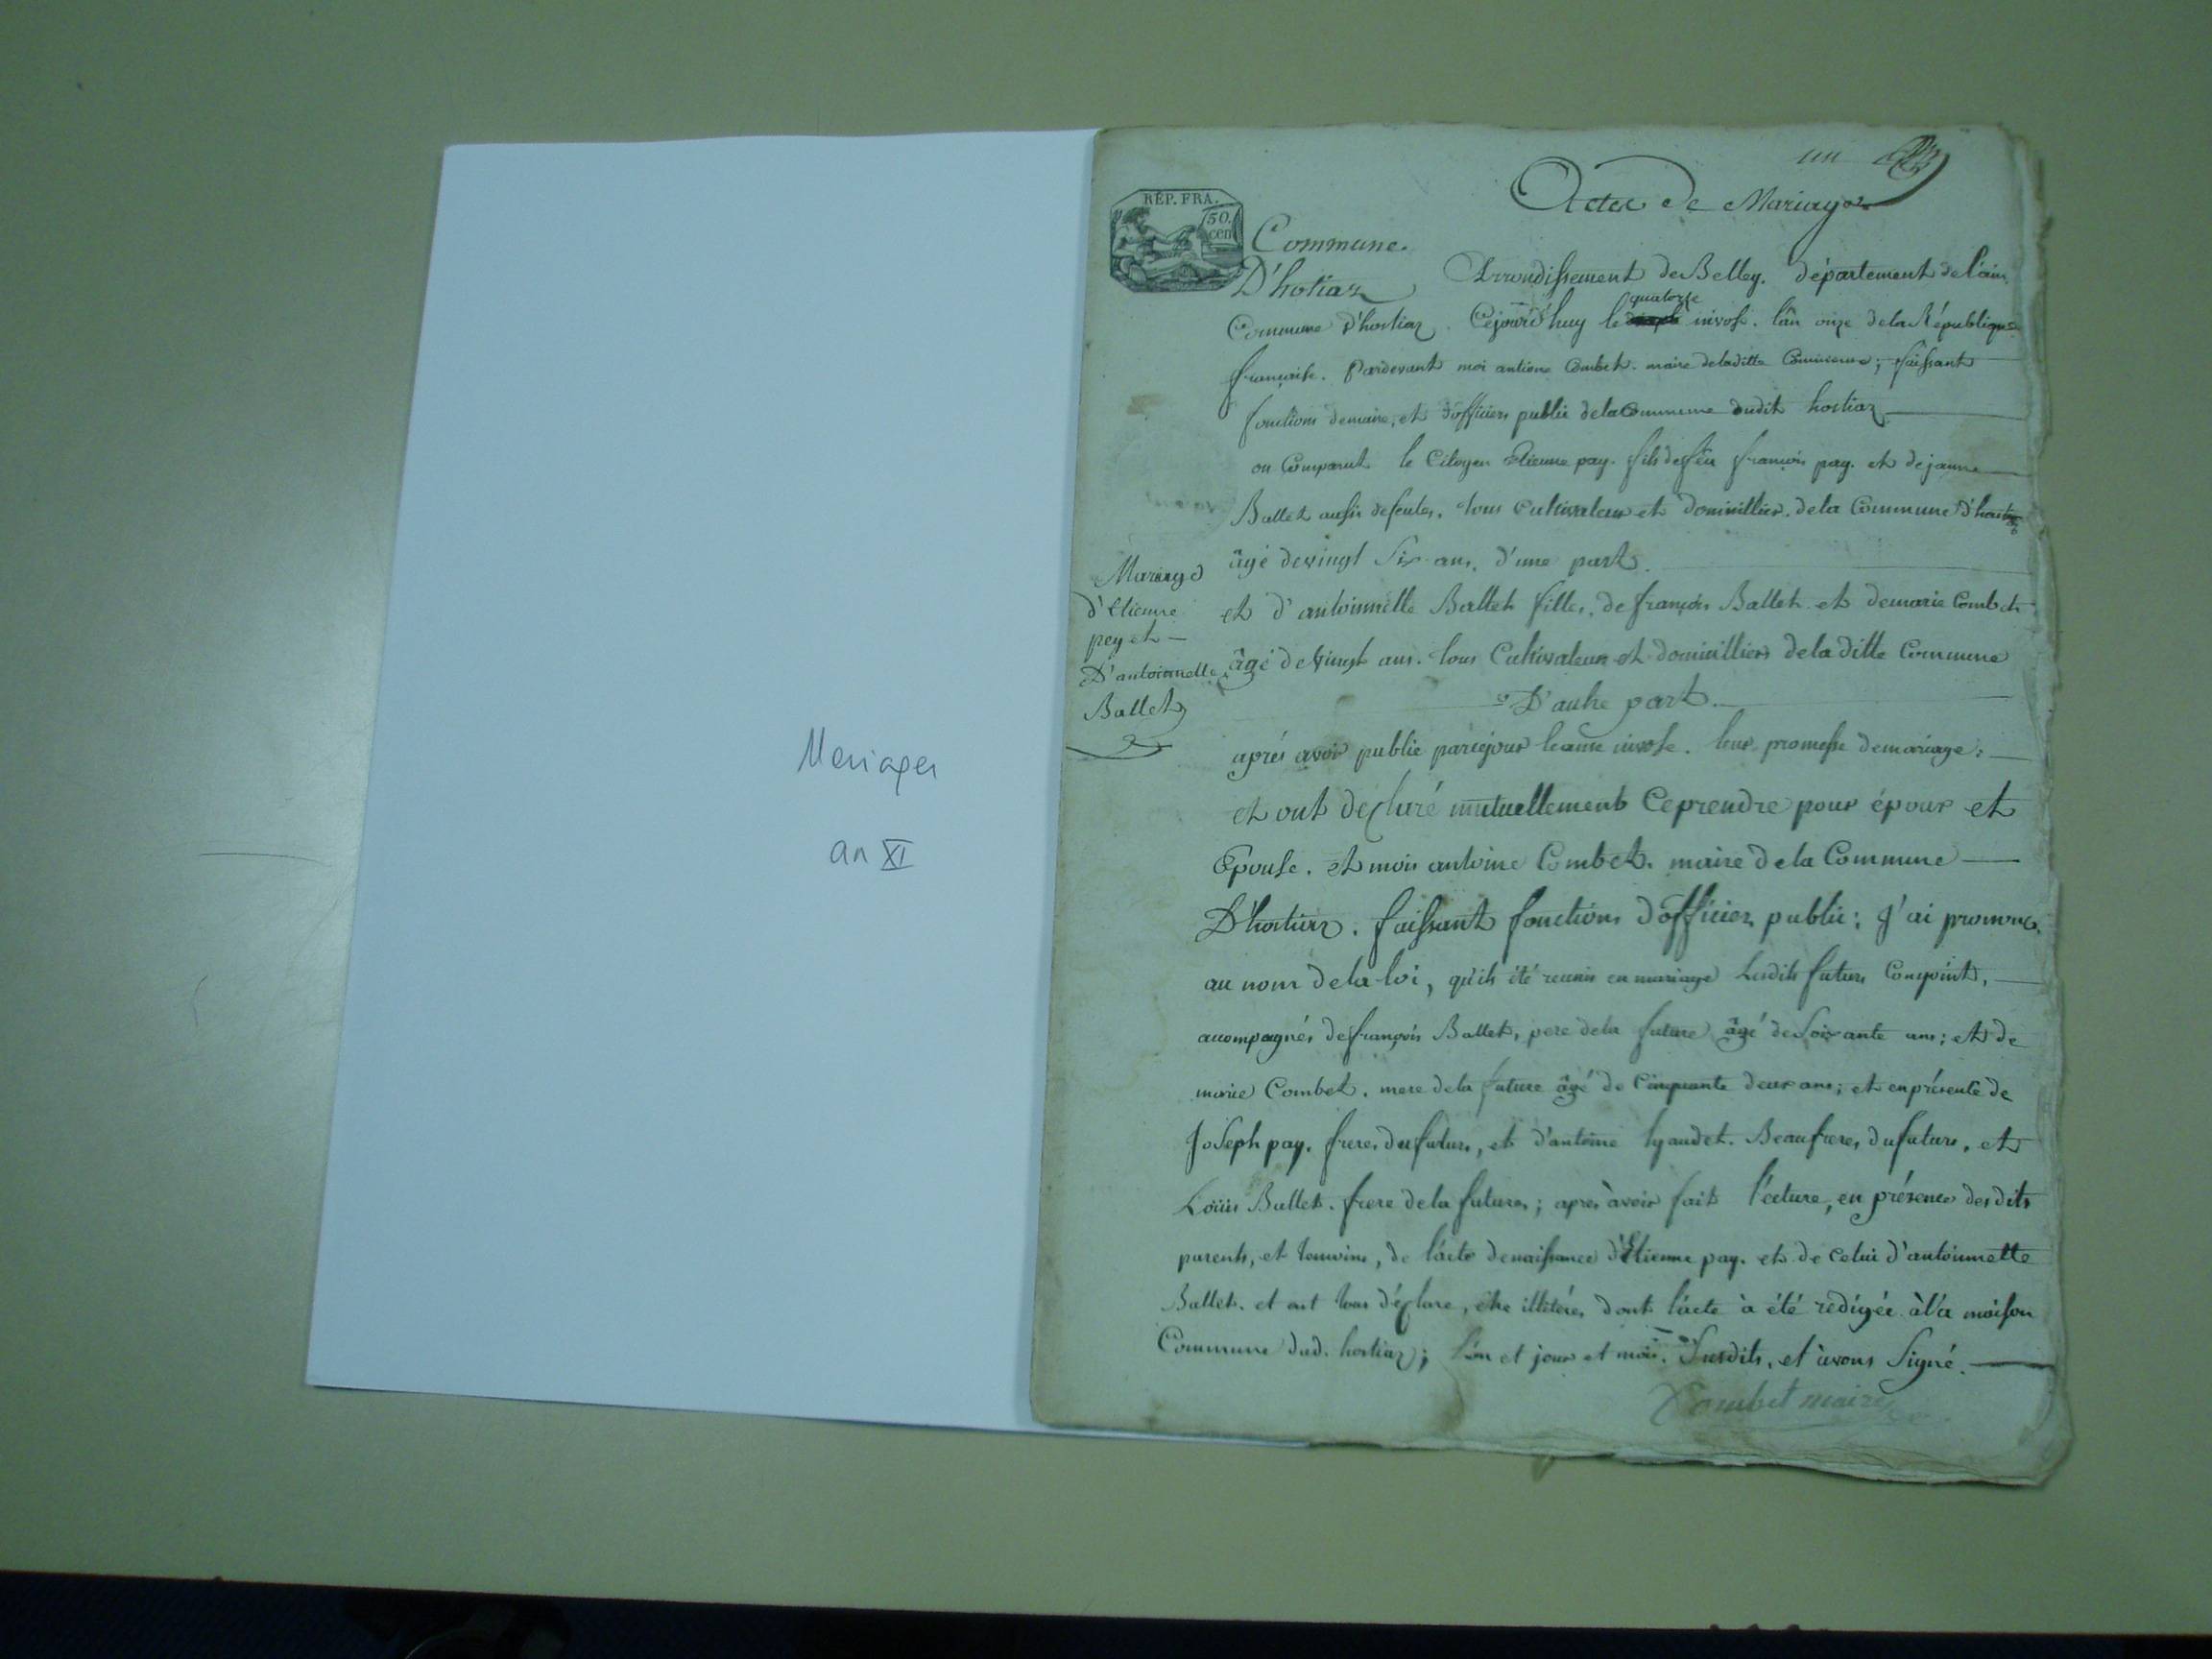 Mariages
an XI
un
Actes de Mariages
RÉP. FRA.
50.
cen
Commune.
D'hotiaz
Arrondissement de Belley. département de l'ain
Commune d'hostiaz. Cejourd'huy le quatorze nivose. l'an onze de la République
française. Pardevant moi antione Combet. maire de laditte Commune; faissant
fonctions de maire, et d'officier public de la Commune dudit hostiaz
on Comparut le Citoyen Etienne pay. fils de feu françois pay. et de janne
Ballet aussi defeutes. tous cultivateur et domicillier. de la Commune
âgé de vingt six ans. d'une part.
et d'antoinnette Ballet fille. de françois Ballet et de marie Combet
âgé de vingt ans. tous Cultivateur et domicilliers de la ditte Commune
D'autre part.
Mariage
d'Etienne
pey et
D'antoinnette
Ballet
aprés avoir publié nivose. leur promesse de mariage:
et ont déclaré mutuellement Ceprendre pour épour et
Epouse. et moi antoine Combet. maire de la Commune
D'hostiaz. faissant fonctions d'officier public: J'ai prononcé
au nom de la loi, qu'ils été reunis en mariage Lesdits futurs Conjoint,
acompagnés de françois Ballet, pere de la future âgé de soixante ans; et de
marie Combet. mere de la future âgé de Cinquante deux ans; et en présence de
Joseph pay. frere du futur, et d'antoine lyaudet. Beaufrere, du future, et
Loüis Ballet. frere de la future; apres àvoir fait l'ecture, en présence des dits
parents, et temoins, de l'acte de naissance d'Etienne pay. et de Celui d'antoinnette
Ballet. et ont tous déclare, être illitéré, dont l'acte à été redigée à la maison
Commune dud. hostiaz; l'an et jour et mois. Susdits, et àvons Signé.
Combet maire